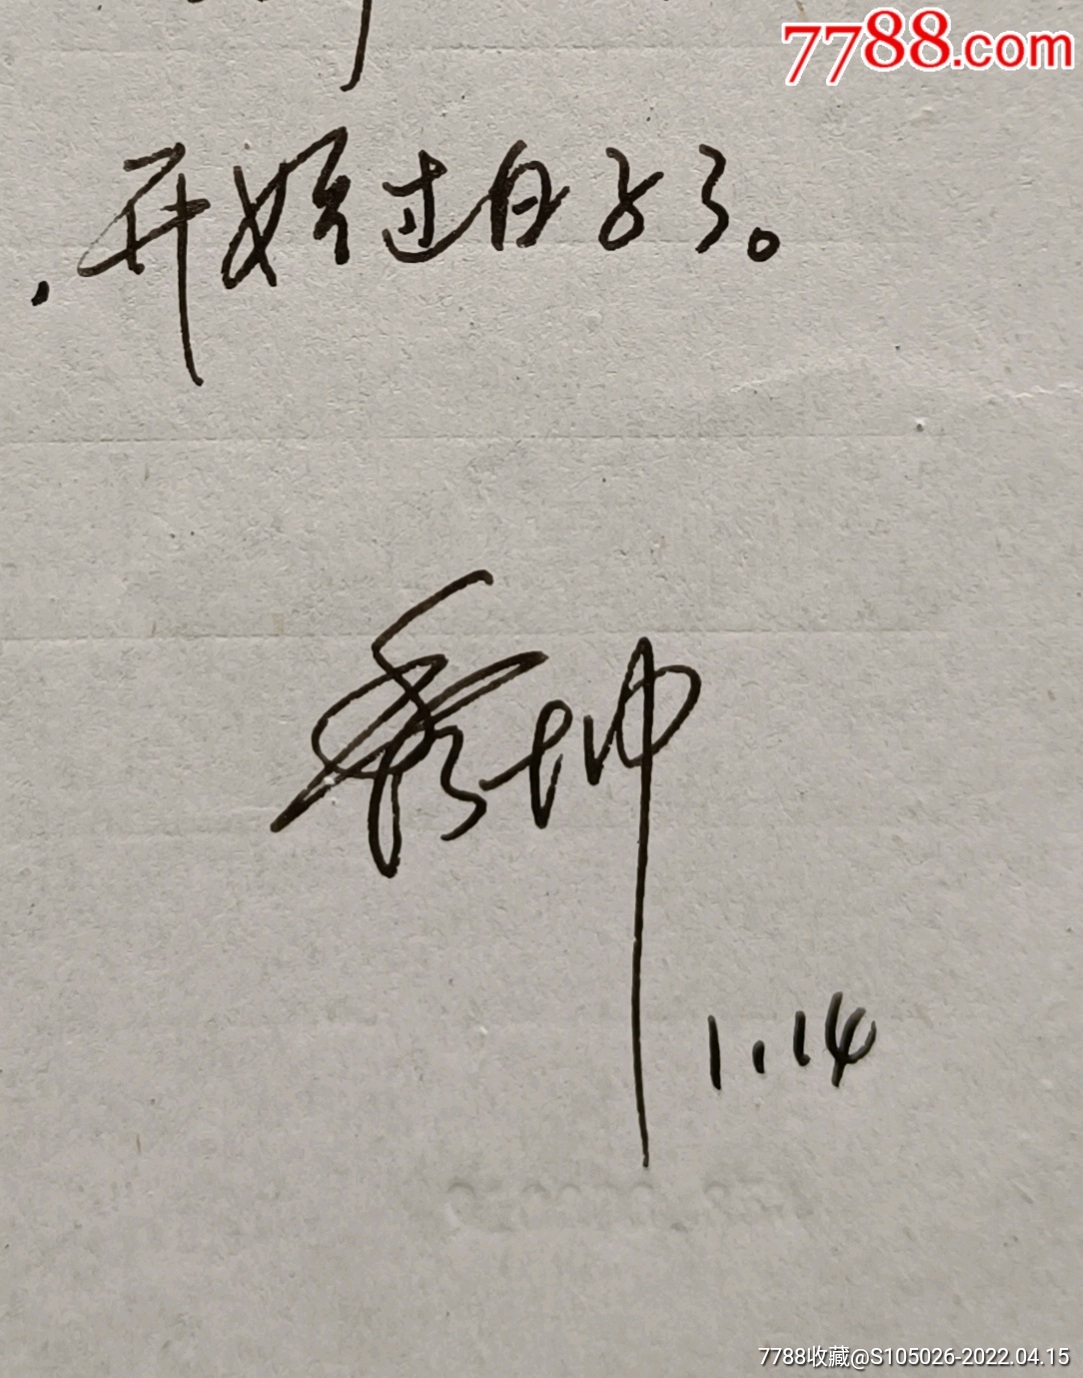 7788.com
开始过日子了。
秀坤
1.14
7788收藏@S105026-2022.04.15